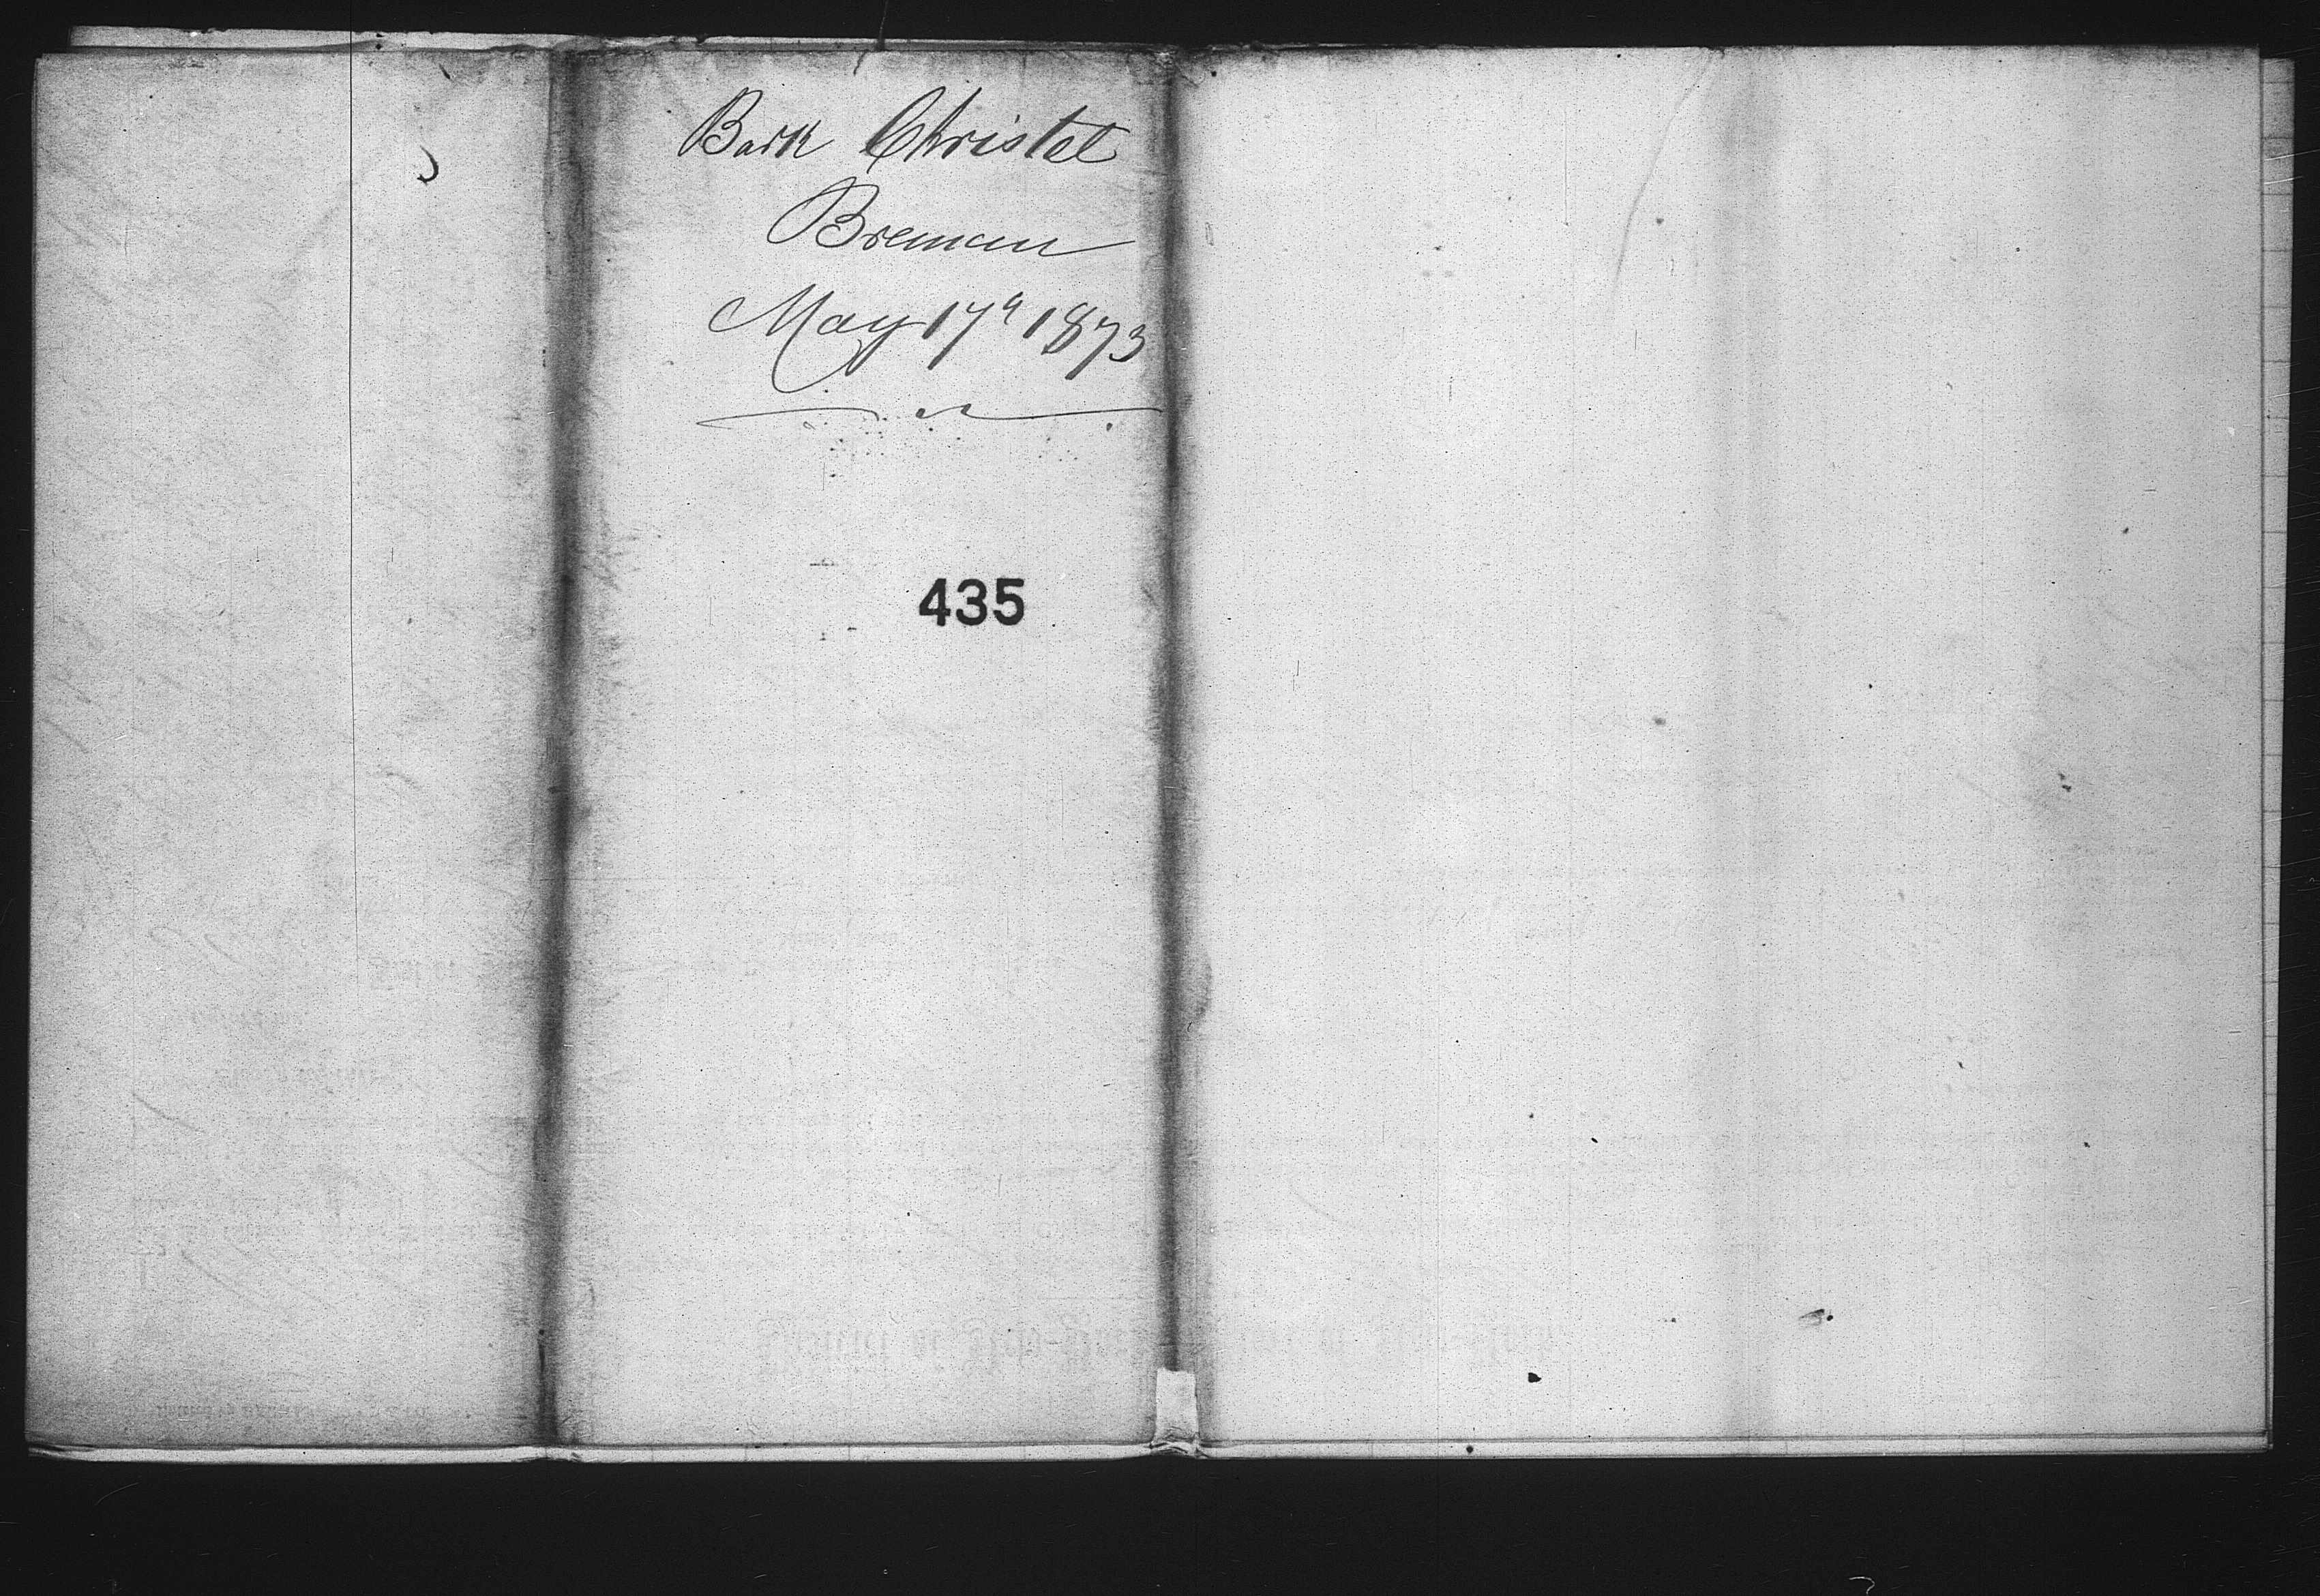 Bark Christel
Breman
May 17th 1873
435